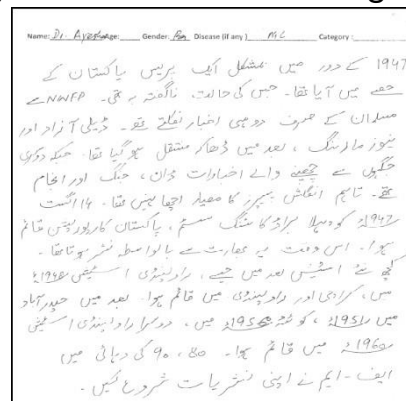 Name: Dr. Ayesha Age: Gender: Disease (If any) Nil Category:
1947 کے دور میں بمشکل ایک پریس پاکستان کے
حصے میں آیا تھا۔ جس کی حالت ناگفتہ بہ تھی۔ NWFP سے
مسلمان کے صرف دو ہی اخبار نکلتے تھے۔ ڈیلی آزاد اور
نیوز مارننگ، بعد میں ڈھاکہ منتقل ہو گیا تھا۔ جبکہ دوسری
جگہوں سے چھپنے والے اخبارات ڈان، جنگ اور انجام
تھے۔ تاہم انگلش پیپرز کا معیار اچھا نہیں تھا۔ 14 اگست
1947ء کو پہلا براڈ کاسٹنگ سسٹم، پاکستان کارپوریشن قائم
ہوا۔ اس وقت یہ عمارت سے بالواسطہ نشر ہوتا تھا۔
کچھ نئے اسٹیشن بعد میں جیسے، راولپنڈی اسٹیشن 1948ء
میں، کراچی اور راولپنڈی میں قائم ہوا۔ بعد میں حیدرآباد
میں 1951ء، کوئٹہ 1956ء میں۔ دوسرا راولپنڈی اسٹیشن
1960ء میں قائم ہوا۔ 80، 90 کی دہائی میں
ایف - ایم نے اپنی نشریات شروع کیں۔